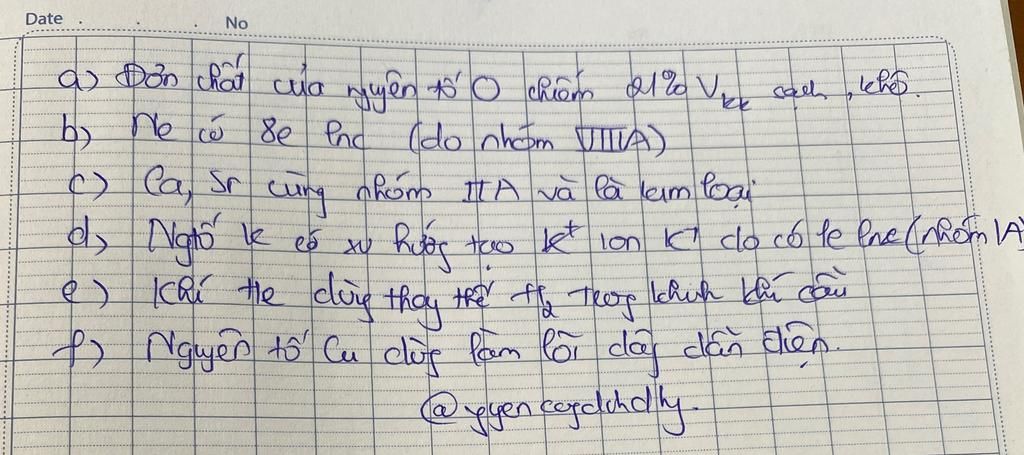 Date . . . No
a) Đơn chất của nguyên tố O chiếm 21% Vkk sạch, khô.
b) Ne có 8e lnc (do nhóm VIIIA)
c) Ca, Sr cùng nhóm IIA và là kim loại
d) Ngtố K có xu hướng tạo K+ ion K+ do có 1e lnc (nhóm IA)
e) Khí He dùng thay thế H2 trong khinh khí cầu
f) Nguyên tố Cu dùng làm lõi dây dẫn điện.